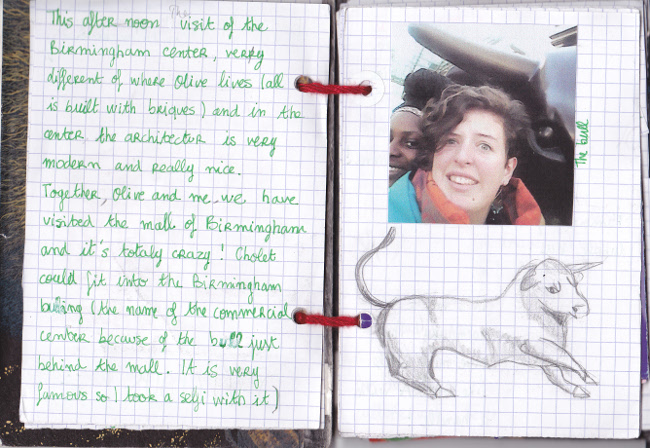 This after noon visit of the
Birmingham center, verry
different of where Olive lives (all
is built with briques) and in the
center the architectur is very
modern and really nice.
Together, Olive and me we have
visited the mall of Birmingham
and it's totaly crazy! Cholet
could fit into the Birmingham
bulring (the name of the commercial
center because of the bull just
behind the mall. It is very
famous so I took a selfi with it)
The bull